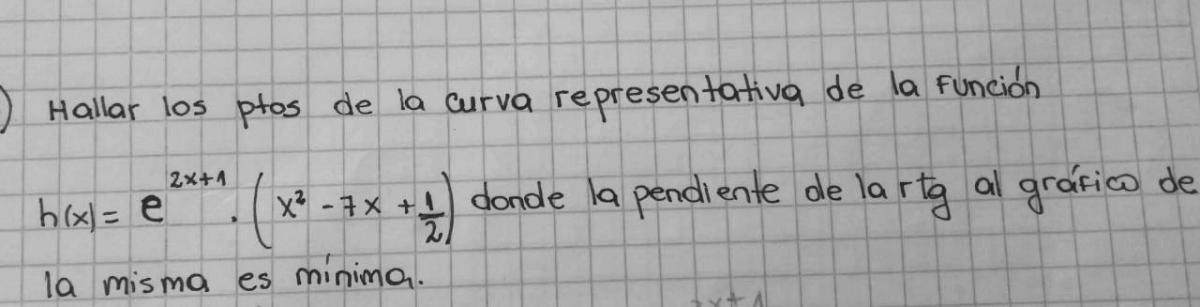 ) Hallar los ptos de la curva representativa de la Función
h(x) = e^(2x+1) · (x² - 7x + 1/2) donde la pendiente de la rtg al gráfico de
la misma es mínima.